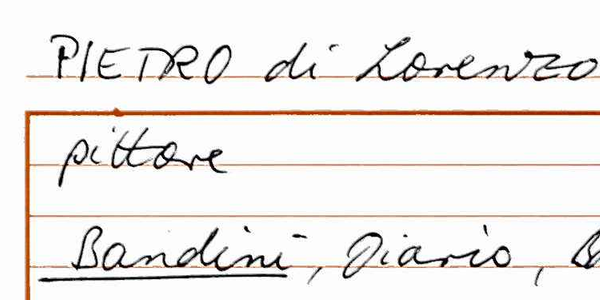 PIETRO di Lorenzo
pittore
Bandini, Diario,